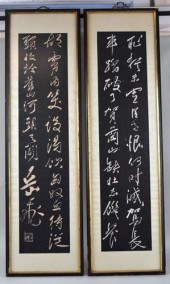 恥猶未雪臣子恨何時滅駕長
車踏破了賀蘭山缺壯志飢餐
胡虜肉笑談渴飲匈奴血待從
頭收拾舊山河朝天闕
岳飛